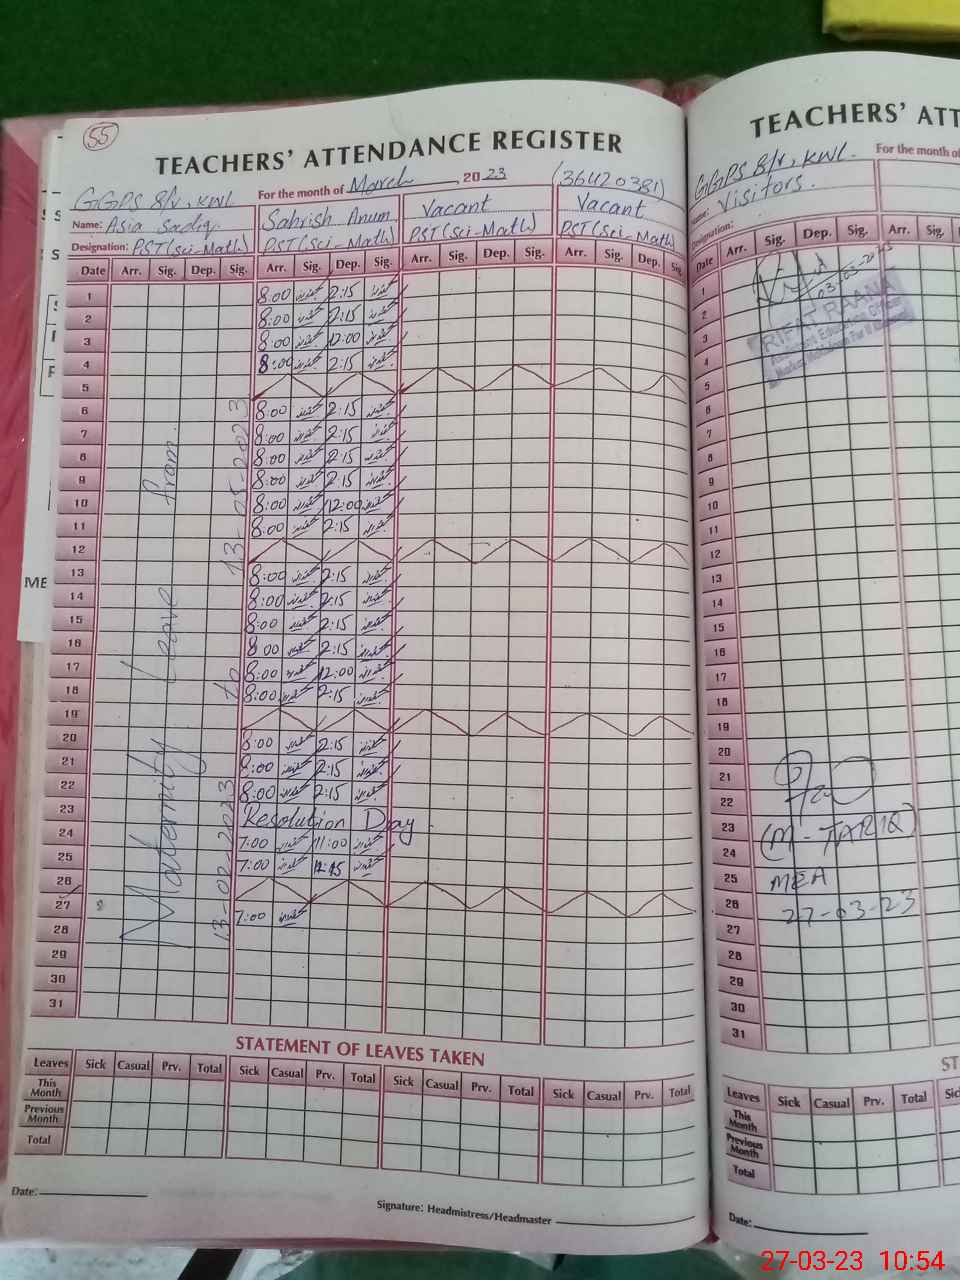 55
TEACHERS' ATTENDANCE REGISTER
GGPS 8/v, KWL
For the month of March 2023 (36420381)
Name: Asia Sadiq
Sahrish Anum
Vacant
Vacant
Designation: PST(Sci-Math)
PST(Sci-Math)
PST(Sci-Math)
PST(Sci-Math)
Date Arr. Sig. Dep. Sig. Arr. Sig. Dep. Sig. Arr. Sig. Dep. Sig. Arr. Sig. Dep. Sig.
1 8:00 2:15
2 8:00 2:15
3 8:00 12:00
4 8:00 2:15
5
6 8:00 2:15
7 8:00 2:15
8 8:00 2:15
9 8:00 2:15
10 8:00 12:00
11 8:00 2:15
12
13 8:00 2:15
14 8:00 2:15
15 8:00 2:15
16 8:00 2:15
17 8:00 12:00
18 8:00 2:15
19
20 8:00 2:15
21 8:00 2:15
22 8:00 2:15
23 Resolution Day
24 7:00 11:00
25 7:00
26
27 7:00
28
29
30
31
Maternity Leave from
13-02-2023 to 13-05-2023
STATEMENT OF LEAVES TAKEN
Leaves Sick Casual Prv. Total Sick Casual Prv. Total Sick Casual Prv. Total Sick Casual Prv. Total
This Month
Previous Month
Total
Date:
Signature: Headmistress/Headmaster
TEACHERS' ATT
GGPS 8/v, KWL.
For the month of
Name: Visitors.
Designation:
Date Arr. Sig. Dep. Sig. Arr. Sig.
1
2
3
4
5
6
7
8
9
10
11
12
13
14
15
16
17
18
19
20
21
22
23
24
25
26
27
28
29
30
31
RIFAT RAANA
Assistant Education Officer
(M-TARIQ)
MEA
27-03-23
ST
Leaves Sick Casual Prv. Total Sic
This Month
Previous Month
Total
Date:
27-03-23 10:54